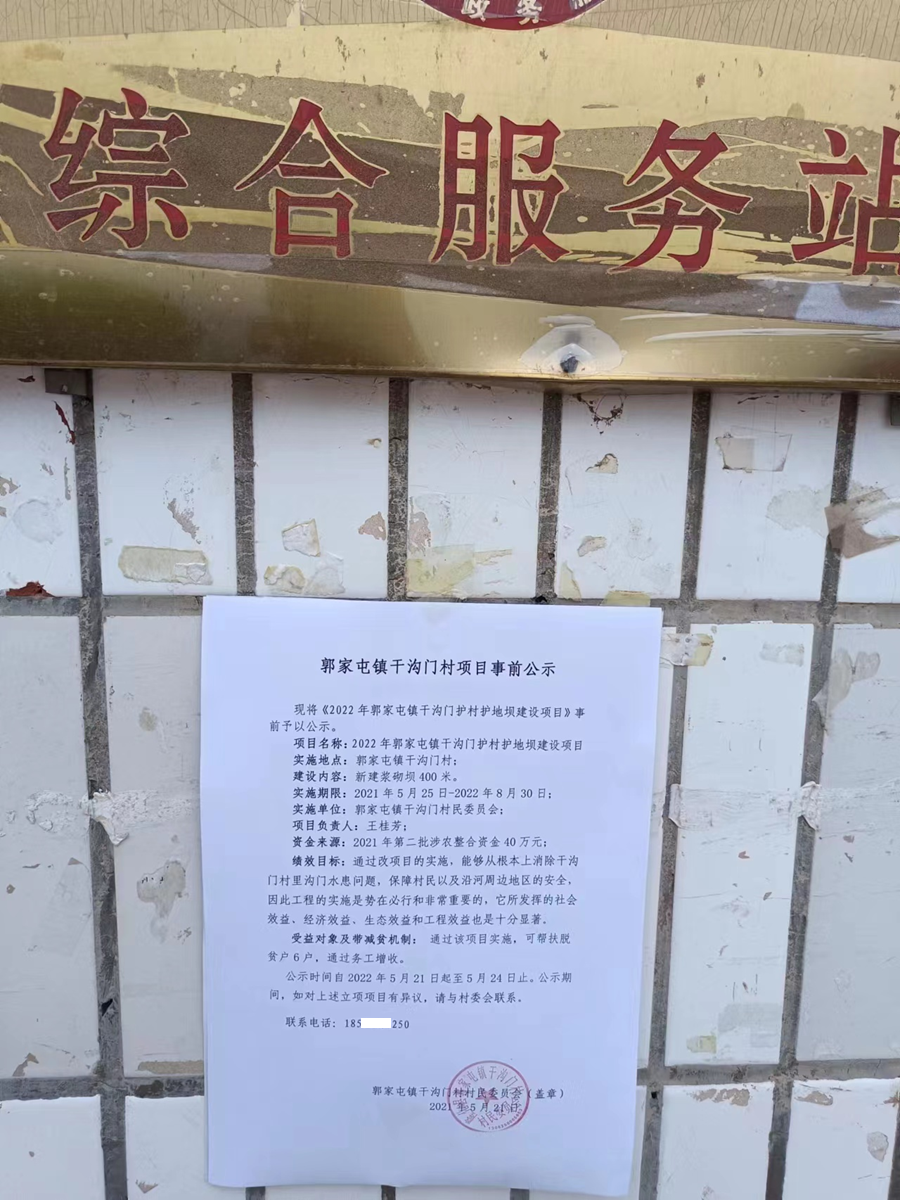 政务服
综合服务站
郭家屯镇干沟门村项目事前公示
现将《2022年郭家屯镇干沟门护村护地坝建设项目》事
前予以公示。
项目名称：2022年郭家屯镇干沟门护村护地坝建设项目
实施地点：郭家屯镇干沟门村；
建设内容：新建浆砌坝400米。
实施期限：2021年5月25日-2022年8月30日；
实施单位：郭家屯镇干沟门村民委员会；
项目负责人：王桂芳；
资金来源：2021年第二批涉农整合资金40万元；
绩效目标：通过改项目的实施，能够从根本上消除干沟
门村里沟门水患问题，保障村民以及沿河周边地区的安全，
因此工程的实施是势在必行和非常重要的，它所发挥的社会
效益、经济效益、生态效益和工程效益也是十分显著。
受益对象及带减贫机制： 通过该项目实施，可帮扶脱
贫户6户，通过务工增收。
公示时间自2022年5月21日起至5月24日止。公示期
间，如对上述立项项目有异议，请与村委会联系。
联系电话：185 250
郭家屯镇干沟门村村民委员会（盖章）
2021年5月21日